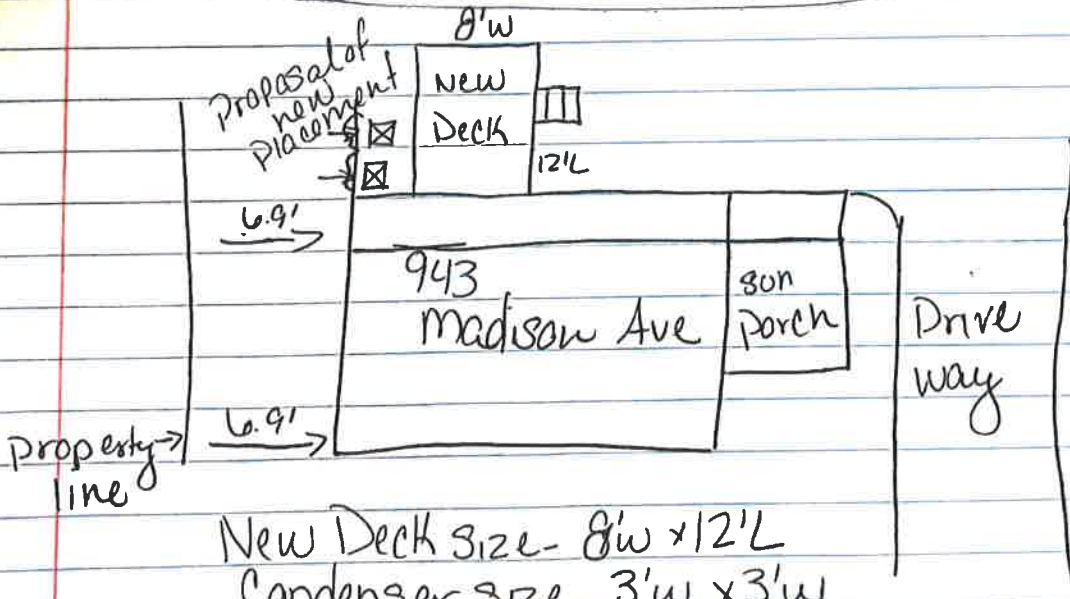 8'w
Proposal of
new
placement
New
Deck
12'L
6.9'
943
Madison Ave
sun
porch
Drive
way
6.9'
property
line
New Deck size- 8'w x12'L
Condenser size 3'w x3'w